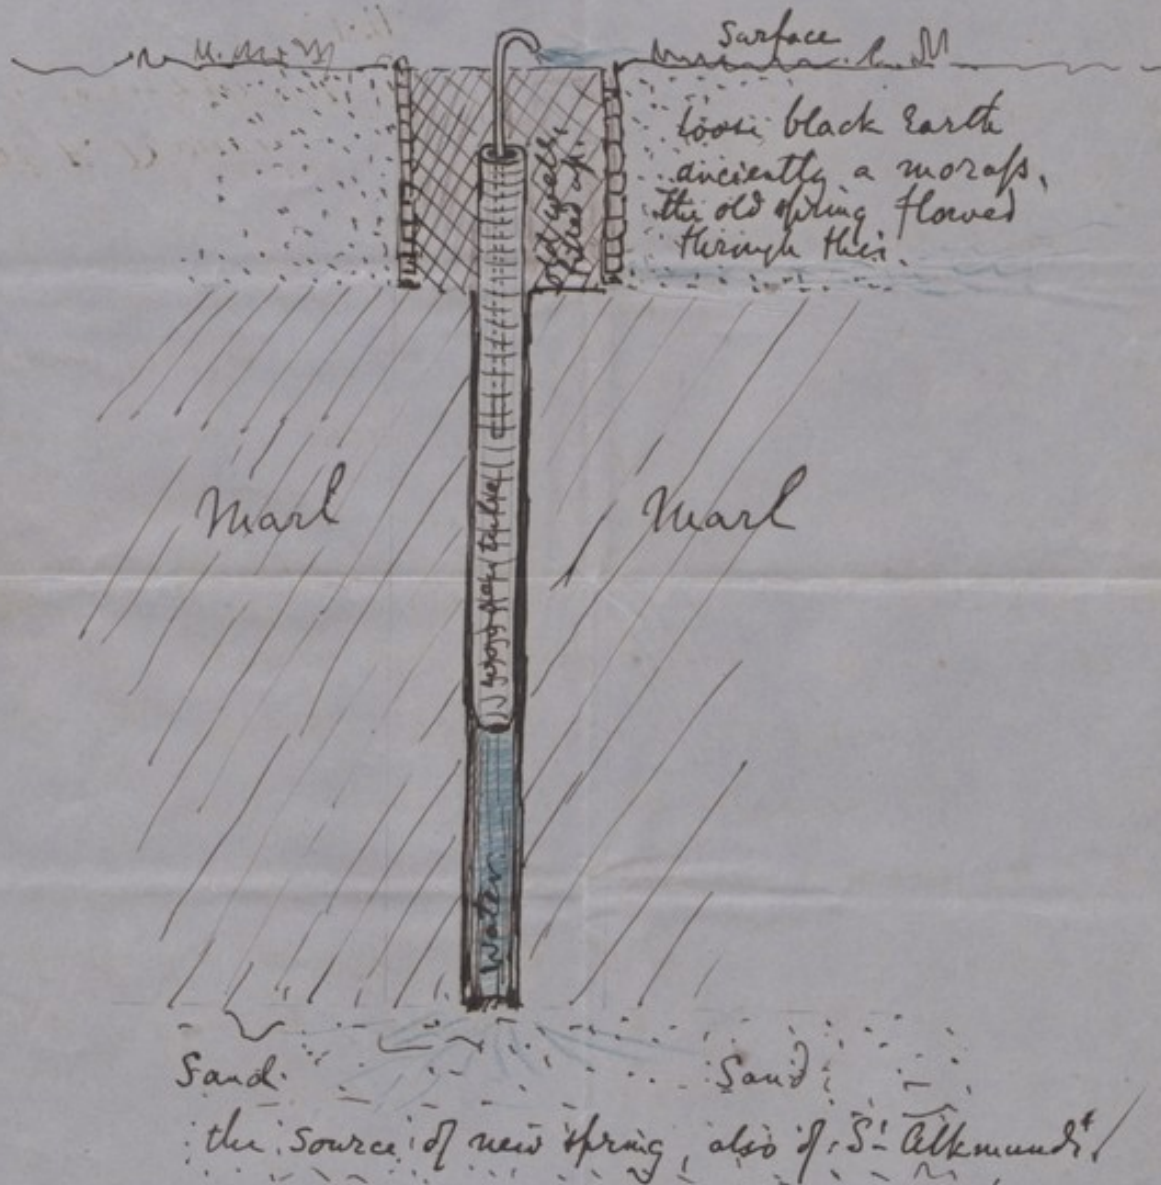 Surface
loose black Earth
anciently a morass,
the old spring flowed
through this.
old well
filled up.
Marl
Marl
wooden tube
Water
Sand.
Sand.
the source of new spring, also of St Alkmunds